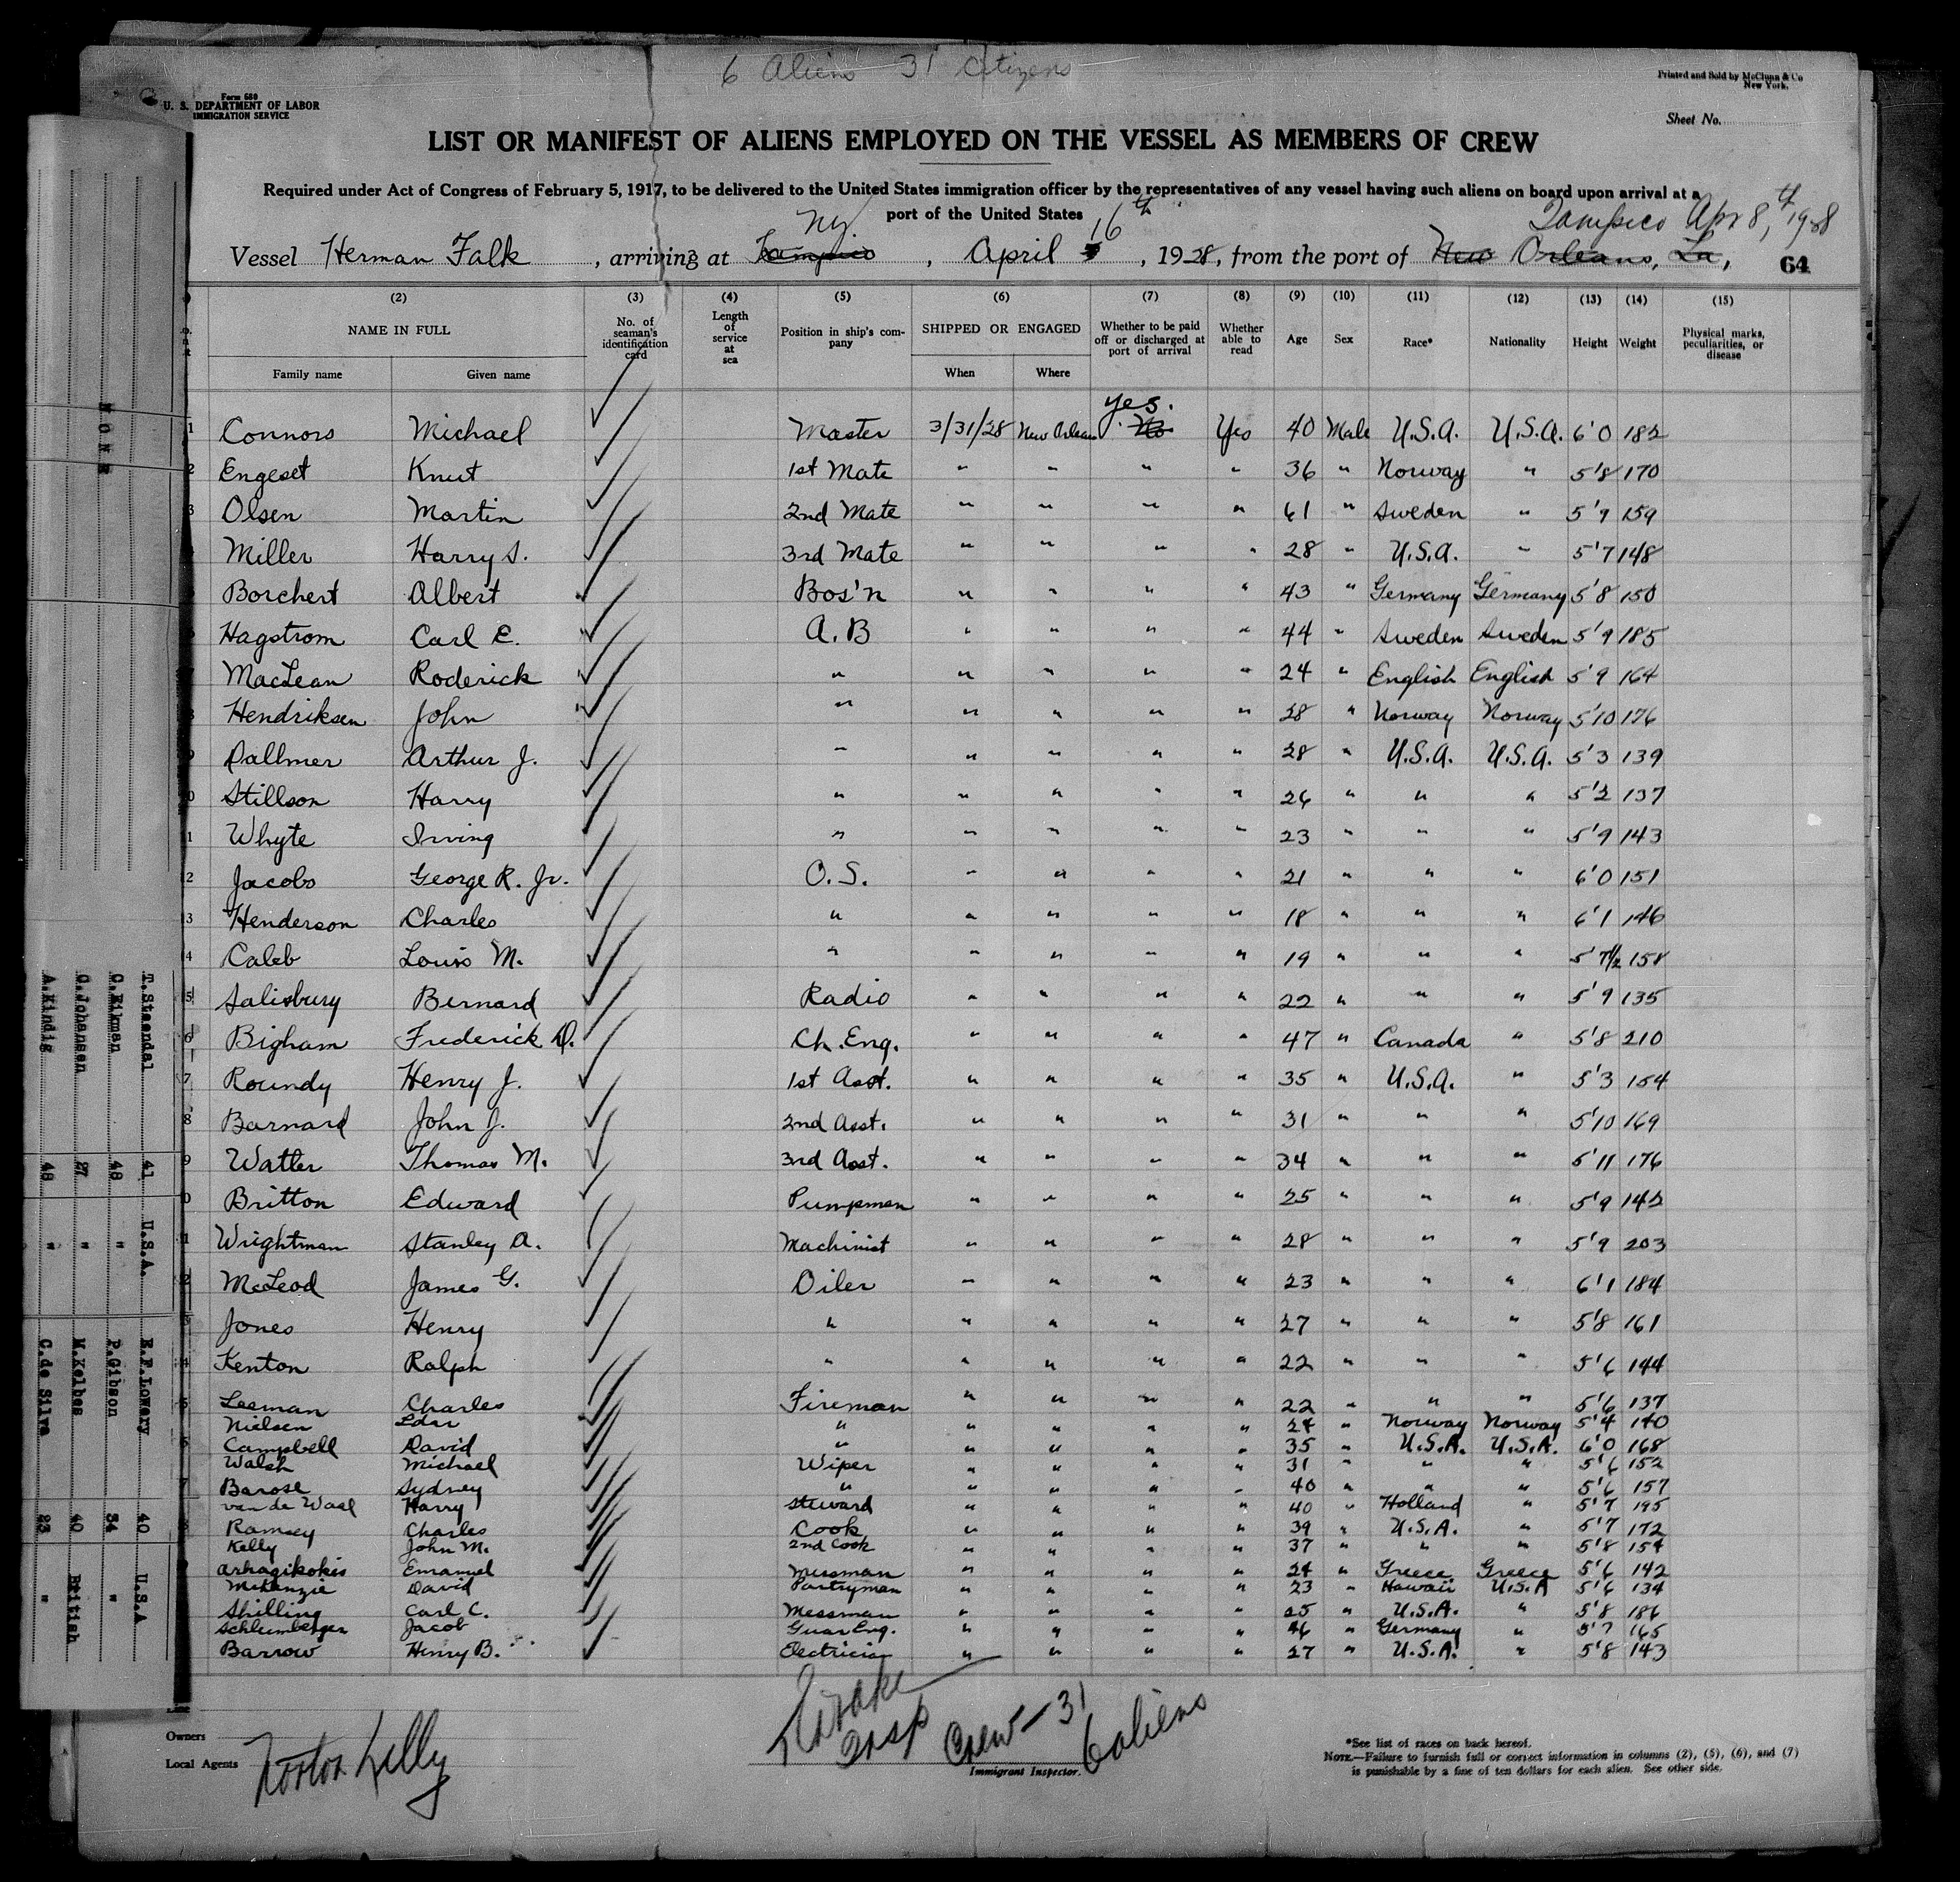 6 Aliens 31 Citizens
Form 680
U. S. DEPARTMENT OF LABOR
IMMIGRATION SERVICE
Printed and Sold by McClunn & Co
New York.
Sheet No.
LIST OR MANIFEST OF ALIENS EMPLOYED ON THE VESSEL AS MEMBERS OF CREW
Required under Act of Congress of February 5, 1917, to be delivered to the United States immigration officer by the representatives of any vessel having such aliens on board upon arrival at a
port of the United States
Ny. 16th Tampico Apr 8th, 1928
Vessel Herman Falk, arriving at Tampico, April, 1928, from the port of New Orleans, La,
64
(2) (3) (4) (5) (6) (7) (8) (9) (10) (11) (12) (13) (14) (15)
NAME IN FULL No. of seaman's identification card Length of service at sea Position in ship's company SHIPPED OR ENGAGED Whether to be paid off or discharged at port of arrival Whether able to read Age Sex Race* Nationality Height Weight Physical marks, peculiarities, or disease
Family name Given name When Where
yes.
1 Connors Michael Master 3/31/28 New Orleans No Yes 40 Male U.S.A. U.S.A. 6'0 182
2 Engeset Knut 1st Mate " " " " 36 " Norway " 5'8 170
3 Olsen Martin 2nd Mate " " " " 61 " Sweden " 5'9 159
Miller Harry S. 3rd Mate " " " " 28 " U.S.A. " 5'7 148
Borchert Albert Bos'n " " " " 43 " Germany Germany 5'8 150
Hagstrom Carl E. A.B " " " " 44 " Sweden Sweden 5'9 185
7 MacLean Roderick " " " " " 24 " English English 5'9 164
Hendriksen John " " " " " 28 " Norway Norway 5'10 176
9 Dallmer Arthur J. " " " " " 28 " U.S.A. U.S.A. 5'3 139
0 Stillson Harry " " " " " 26 " " " 5'2 137
1 Whyte Irving " " " " " 23 " " " 5'9 143
2 Jacobs George R. Jr. O.S. " " " " 21 " " " 6'0 151
3 Henderson Charles " " " " " 18 " " " 6'1 146
4 Caleb Louis M. " " " " " 19 " " " 5'7½ 158
5 Salisbury Bernard Radio " " " " 22 " " " 5'9 135
6 Bigham Frederick D. Ch. Eng. " " " " 47 " Canada " 5'8 210
7 Roundy Henry J. 1st Asst. " " " " 35 " U.S.A. " 5'3 154
8 Barnard John J. 2nd Asst. " " " " 31 " " " 5'10 169
9 Watler Thomas M. 3rd Asst. " " " " 34 " " " 5'11 176
0 Britton Edward Pumpman " " " " 25 " " " 5'9 142
1 Wrightman Stanley A. Machinist " " " " 28 " " " 5'9 203
2 McLeod James G. Oiler " " " " 23 " " " 6'1 184
Jones Henry " " " " " 27 " " " 5'8 161
4 Kenton Ralph " " " " " 22 " " " 5'6 144
Lesman Charles Fireman " " " " 22 " " " 5'6 137
Nielsen " " " " " 24 " Norway Norway 5'4 140
Campbell David " " " " " 35 " U.S.A. U.S.A. 6'0 168
Walsh Michael Wiper " " " " 31 " " " 5'6 152
7 Barose Sydney " " " " " 40 " " " 5'6 157
van de Waal Harry Steward " " " " 40 " Holland " 5'7 195
Ramsey Charles Cook " " " " 39 " U.S.A. " 5'7 172
Kelly John M. 2nd Cook " " " " 37 " " " 5'8 154
Arhagikokis Emanuel Messman " " " " 24 " Greece Greece 5'6 142
McKenzie David Pantryman " " " " 23 " Hawaii U.S.A 5'6 134
Shilling Carl C. Messman " " " " 25 " U.S.A. " 5'8 186
Schlumberger Jacob Guar Eng. " " " " 46 " Germany " 5'7 165
Barrow Henry B. Electrician " " " " 27 " U.S.A. " 5'8 143
Insp Crew - 31
6 aliens
Owners
Local Agents Norton Lilly
Immigrant Inspector.
*See list of races on back hereof.
NOTE.—Failure to furnish full or correct information in columns (2), (5), (6), and (7)
is punishable by a fine of ten dollars for each alien. See other side.
NONE
T.Staendal 41 U.S.A. E.F.Lowery 40 U.S.A
C.Eikman 48 " P.Gibson 34 "
G.Johansen 27 " M.Kelbes 40 British
A.Kindig 48 " C.de Silva 23 "